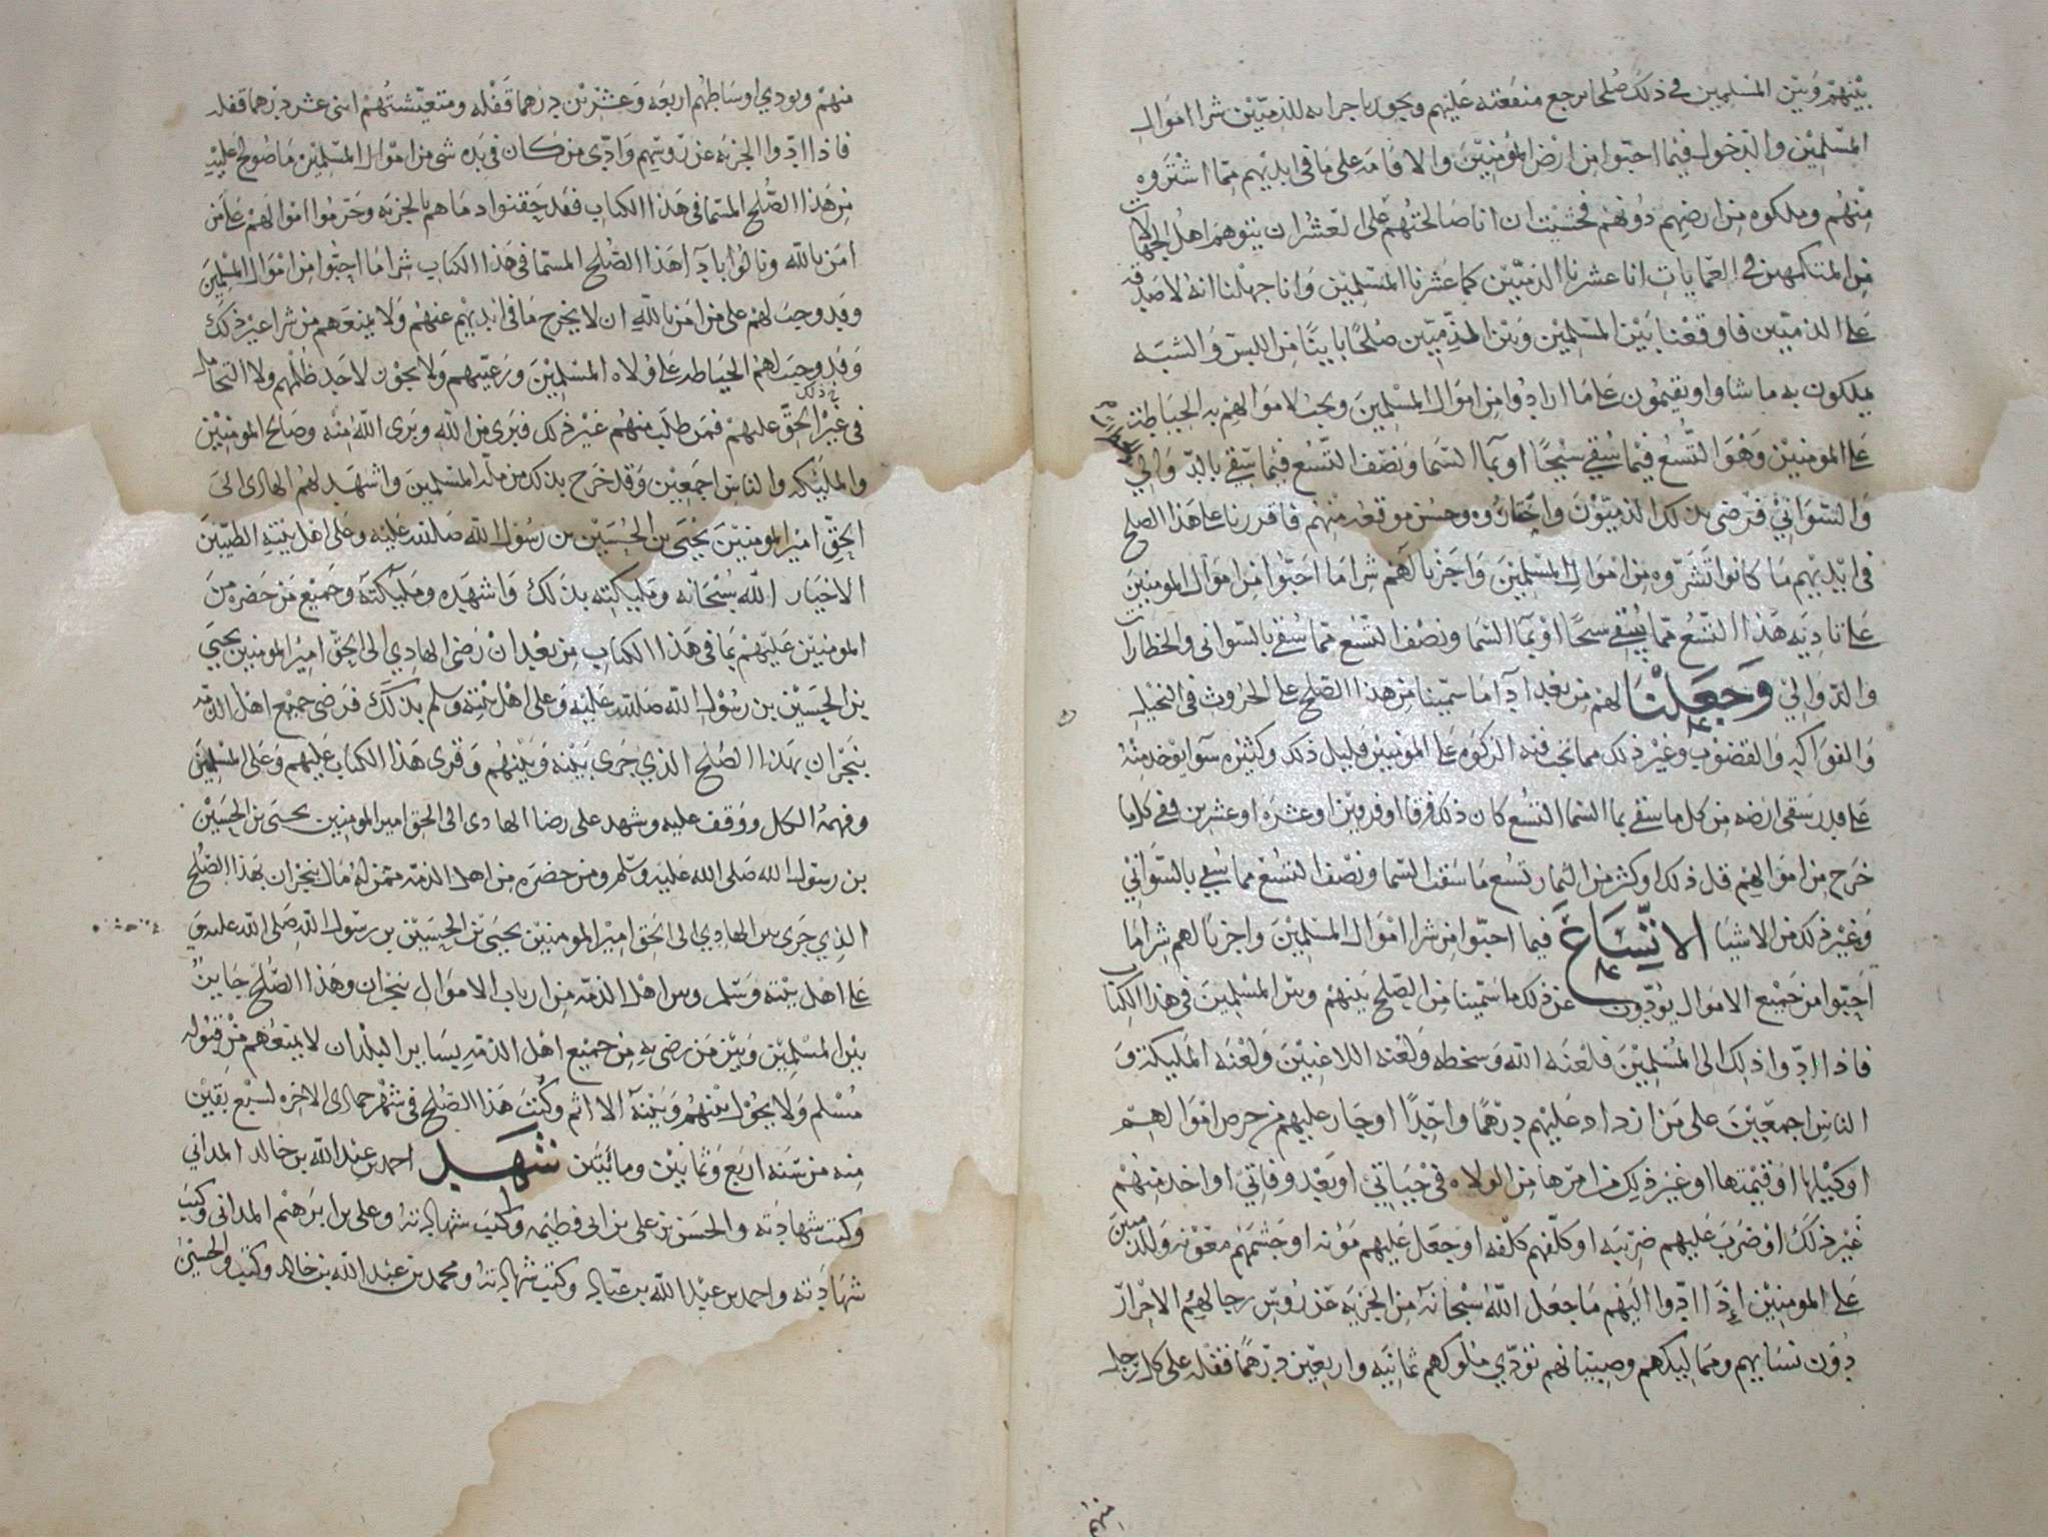 بينهم وبين المسلمين في ذلك صلحا ترجع منفعته عليهم ويجوز باجرابه للذميين شرا اموال
المسلمين والدخول فيما احبوا من ارض المومنين والاقامه على ما في ايديهم مما اشتروه
منهم وملكوه من ارضهم دونهم فخشيت ان انا صالحتهم على العشر ان يتوهم اهل الجهالات
من المتكمهين في العمايات انا عشرنا الذميين كما عشرنا المسلمين وانا جهلنا انه لا صدقه
على الذميين فاوقعنا بين المسلمين وبين الذميين صلحا باينا من اللبس والشبه
يملكون به ما شاوا ويقيمون على ما ارادوا من اموال المسلمين ويجب لاموالهم به الحياطة
على المومنين وهو التسع فيما سقي سيحا او بما السما ونصف التسع فيما سقي بالدوالي
والسواني فرضى بذلك الذميون واختاروه وحسن موقعه منهم فاقررنا على هذا الصلح
في ايديهم ما كانوا تشروه من اموال المسلمين واجزنا لهم شرا ما احبوا من اموال المومنين
على تاديه هذا التسع مما يسقي سيحا او بما السما ونصف التسع مما سقي بالسواني والخطارات
والدوالي وجعلنا لهم من بعد ادا ما سمينا من هذا الصلح على الحروث في النخيل
والفواكه والقضوب وغير ذلك مما تجب فيه الزكوه على المومنين قليل ذلك وكثيره سوا يوخذ منه
على قدر سقي ارضه من كل ما سقي بما السما التسع كان ذلك فرقا او فرقين او عشره او عشرين ففي كل ما
خرج من اموالهم قل ذلك او كثر من الثمار تسع ما سقت السما ونصف التسع مما سقي بالسواني
وغير ذلك من الاشيا الاتساع فيما احبوا من شرا اموال المسلمين واجزنا لهم شرا ما
احبوا من جميع الاموال يودون عن ذلك ما سمينا من الصلح بينهم وبين المسلمين في هذا الكتاب
فاذا ادوا ذلك الى المسلمين فلعنه الله وسخطه ولعنه اللاعنين ولعنه المليكة و
الناس اجمعين على من ازداد عليهم درهما واحدا او جار عليهم في خرص اموالهم
او كيلها او قيمتها او غير ذلك من امرها من الولاه في حياتي او بعد وفاتي او اخذ منهم
غير ذلك او ضرب عليهم ضريبه او كلفهم كلفه او جعل عليهم مؤنه او جشمهم معونه وللذميين
على المومنين اذا ادوا اليهم ما جعل الله سبحانه من الجزيه عن روس رجالهم الاحرار
دون نسايهم ومماليكهم وصبيانهم تؤدي ملوكهم ثمانيه واربعين درهما قفله على كل رجل
منهم ويودي اوساطهم اربعه وعشرين درهما قفله ومتعيشتهم اثنى عشر درهما قفله
فاذا ادوا الجزيه عن روسهم وادى من كان في يده شي من اموال المسلمين ما صولح عليه
من هذا الصلح المسما في هذا الكتاب فقد حقنوا دماهم بالجزيه وحرموا اموالهم على من
امن بالله ونالوا بادآ هذا الصلح المسما في هذا الكتاب شرا ما احبوا من اموال المسلمين
وقد وجب لهم على من امن بالله ان لا يخرج ما في ايديهم عنهم ولا يمنعهم من شرا غير ذلك
وقد وجب لهم الحياطه على ولاه المسلمين ورعيتهم ولا يجوز لاحد ظلمهم ولا التحامل
في غير الحق عليهم فمن طلب منهم غير ذلك فبرى من الله وبرى الله منه وصالح المومنين
والمليكه والناس اجمعين وقد خرج بذلك من مله المسلمين واشهد لهم الهادى الى
الحق امير المومنين يحيى بن الحسين بن رسول الله صلى الله عليه وعلى اهل بيته الطيبين
الاخيار الله سبحانه ومليكته بذلك واشهده ومليكته وجميع من حضره من
المومنين عليهم بما في هذا الكتاب من بعد ان رضى الهادي الى الحق امير المومنين يحيى
بن الحسين بن رسول الله صلى الله عليه وعلى اهل بيته وسلم بذلك فرضى جميع اهل الذمه
بنجران بهذا الصلح الذي جرى بينه وبينهم وقرى هذا الكتاب عليهم وعلى المسلمين
وفهمه الكل ووقف عليه وشهد على رضا الهادى الى الحق امير المومنين يحيى بن الحسين
بن رسول الله صلى الله عليه وسلم ومن حضره من اهل الذمه ممن له مال بنجران بهذا الصلح
الذي جرى بين الهادي الى الحق امير المومنين يحيى بن الحسين بن رسول الله صلى الله عليه و
على اهل بيته وسلم وبين اهل الذمه من ارباب الاموال بنجران وهذا الصلح جايز
بين المسلمين وبين من رضى به من جميع اهل الذمه بساير البلدان لا يمنعهم من قبوله
مسلم ولا يحول بينهم وبينه الا اثم وكتب هذا الصلح في شهر جمادى الاخره لسبع بقين
منه من سنه اربع وثمانين ومائتين شهد احمد بن عبد الله بن خالد المداني
وكتب شهادته والحسن بن علي بن ابي فطيمه وكتب شهادته وعلي بن ابرهيم المداني وكتب
شهادته واحمد بن عبد الله بن عباد وكتب شهادته ومحمد بن عبد الله بن خالد وكتب والحسين